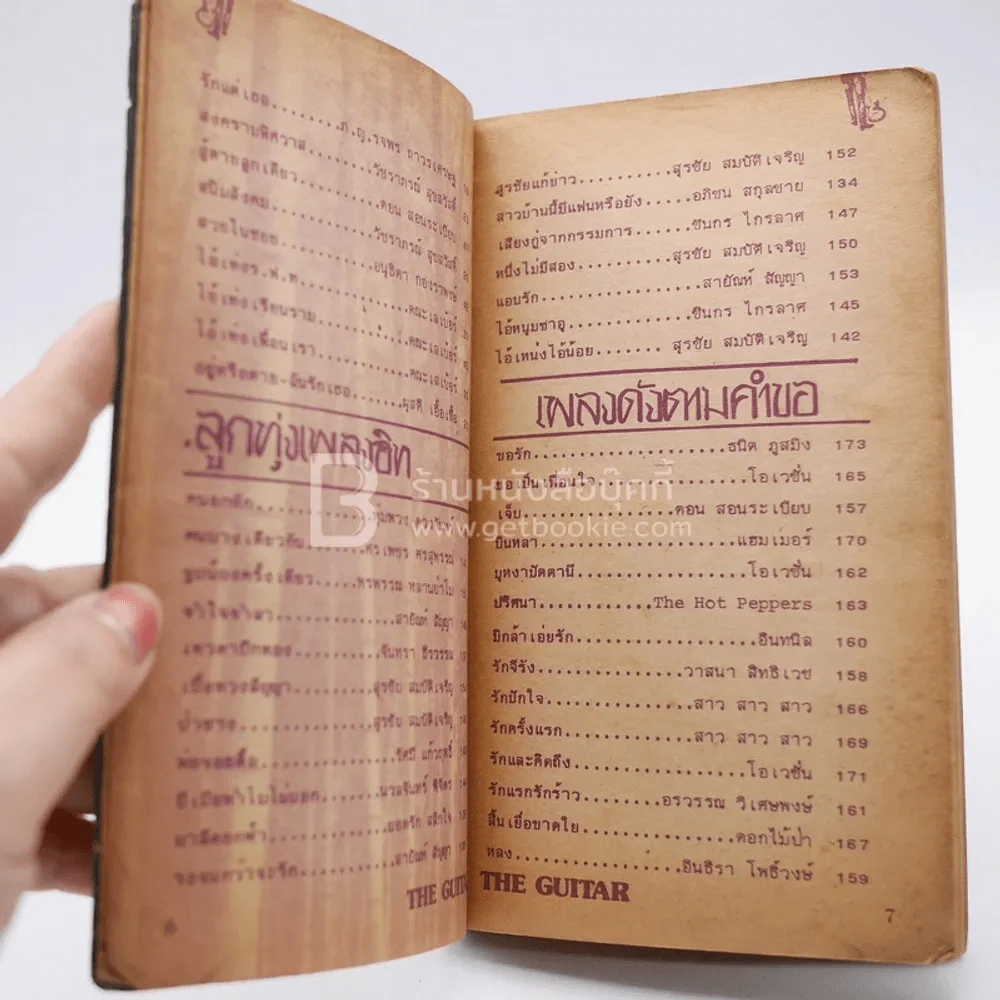 รักแต่เธอ........ภ.ญ.รจพร ถาวรเศรษฐ
สงครามพิศวาส........วัชราภรณ์ สุขสวัสดิ์
สู้ตายลูกเดียว........ดอน สอนระเบียบ
สนิมสังคม........วัชราภรณ์ สุขสวัสดิ์
สวยในซอย........อนุธิดา
ไอ้เท่ง ร.ฟ.ท.........คณะเลเบอร์
ไอ้เท่งเรียนราม........คณะเลเบอร์
ไอ้เท่งเพื่อนเรา........คณะเลเบอร์
อยู่หรือตาย-ฉันรักเธอ........ผุสดี เอื้อเฟื้อ
ลูกทุ่งเพลงฮิต
คนอกหัก........พุ่มพวง
คนนางเดียวกัน........ศรเพชร ศรสุพรรณ
ขอบน้องครั้งเดียว........พรพรรณ
จำใจจำลา........สายัณห์ สัญญา
จันทรา ธีรวรรณ
สุรชัย สมบัติเจริญ
สุรชัย สมบัติเจริญ
พ่อจอมตื้อ........รัศมี แก้วฤทธิ์
มีเมียทำไมไม่บอก........นวลจันทร์
มาลีดอกฟ้า........ยอดรัก สลักใจ
รอจนกว่าจะรัก........สายัณห์ สัญญา
THE GUITAR
6
สุรชัยแก้ข่าว..........สุรชัย สมบัติเจริญ 152
สาวบ้านนี้มีแฟนหรือยัง.....อภิชน สกุลชาย 134
เสียงกู่จากกรรมการ......ชินกร ไกรลาศ 147
หนึ่งไม่มีสอง..........สุรชัย สมบัติเจริญ 150
แอบรัก................สายัณห์ สัญญา 153
ไอ้หนุ่มซาอุ............ชินกร ไกรลาศ 145
ไอ้เหน่งไอ้น้อย....... สุรชัย สมบัติเจริญ 142
เพลงดังตามคำขอ
ขอรัก....................ธนิต ภูสมิง 173
ขอเป็นเพื่อนใจ..............โอเวชั่น 165
เจ็บ................ดอน สอนระเบียบ 157
บินหลา....................แฮมเมอร์ 170
บุหงาปัตตานี...............โอเวชั่น 162
ปริศนา...........The Hot Peppers 163
มิกล้าเอ่ยรัก................อินทนิล 160
รักจีรัง...............วาสนา สิทธิเวช 158
รักปักใจ..............สาว สาว สาว 166
รักครั้งแรก............สาว สาว สาว 169
รักและคิดถึง...............โอเวชั่น 171
รักแรกรักร้าว........อรวรรณ วิเศษพงษ์ 161
สิ้นเยื่อขาดใย..............ดอกไม้ป่า 167
หลง................อินธิรา โพธิ์วงษ์ 159
THE GUITAR
7
ร้านหนังสือบุ๊คกี้
www.getbookie.com